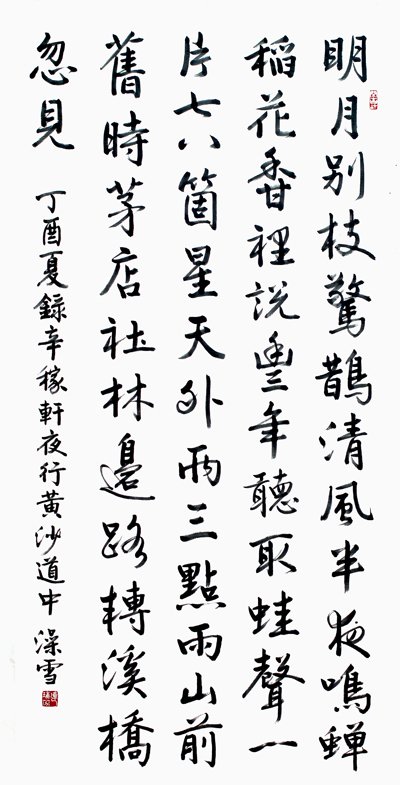 明月别枝驚鵲清風半夜鳴蟬
稻花香裡説豐年聽取蛙聲一
片七八箇星天外兩三點雨山前
舊時茅店社林邊路轉溪橋
忽見
丁酉夏錄辛稼軒夜行黄沙道中 澡雪